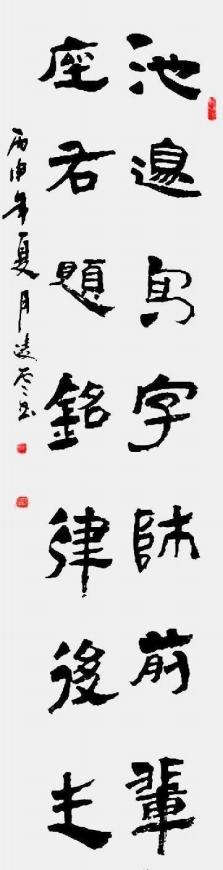 池邊寫字師前輩
座右題銘律後生
丙申年夏月